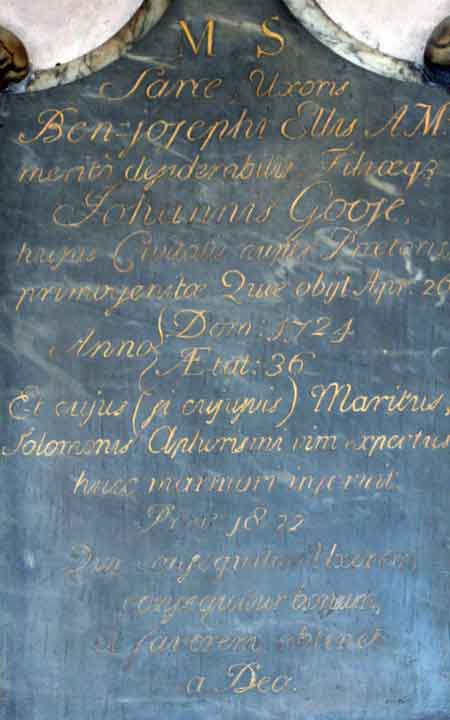 M S
Saræ Uxoris
Ben-josephi Ellis A.M.
meritò desiderabilis, Filiæq3
Johannis Goose,
hujus Civitatis nuper Prætoris
primogenitæ Quæ obijt Apr. 26
Anno Dom: 1724
Ætat: 36
Et cujus (si cujusvis) Maritus,
Solomonis Aphorismi vim expertus
huic marmori inseruit
Prov 18 22
Qui consequitur Uxorem
consequitur bonum,
et favorem obtinet
a Deo.